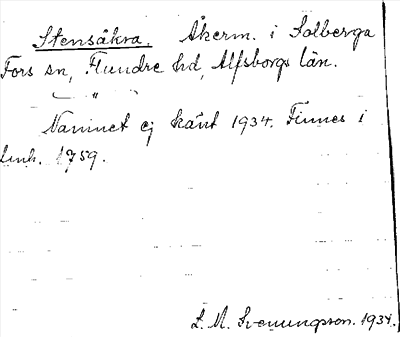 Stensåkra. Åkerm. i Solberga
Fors sn, Flundre hd, Älfsborgs län.
— " —
Namnet ej känt 1934. Finnes i
1759.
L. M. Svenungsson. 1934.